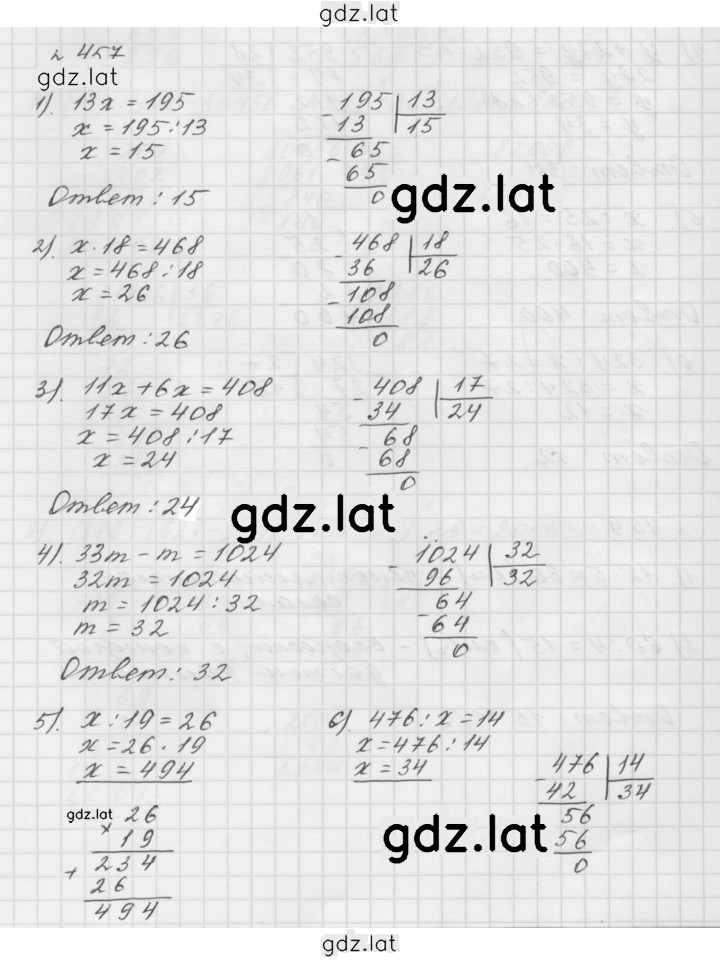 gdz.lat
№ 457
gdz.lat
1). 13x = 195
x = 195 : 13
x = 15
195 | 13
13 | 15
65
65
0
Ответ : 15
gdz.lat
2). x · 18 = 468
x = 468 : 18
x = 26
468 | 18
36 | 26
108
108
0
Ответ : 26
3). 11x + 6x = 408
17x = 408
x = 408 : 17
x = 24
408 | 17
34 | 24
68
68
0
Ответ : 24
gdz.lat
4). 33m - m = 1024
32m = 1024
m = 1024 : 32
m = 32
1024 | 32
96 | 32
64
64
0
Ответ : 32
5). x : 19 = 26
x = 26 · 19
x = 494
gdz.lat
26
× 19
234
+ 26
494
6). 476 : x = 14
x = 476 : 14
x = 34
476 | 14
42 | 34
56
56
0
gdz.lat
gdz.lat